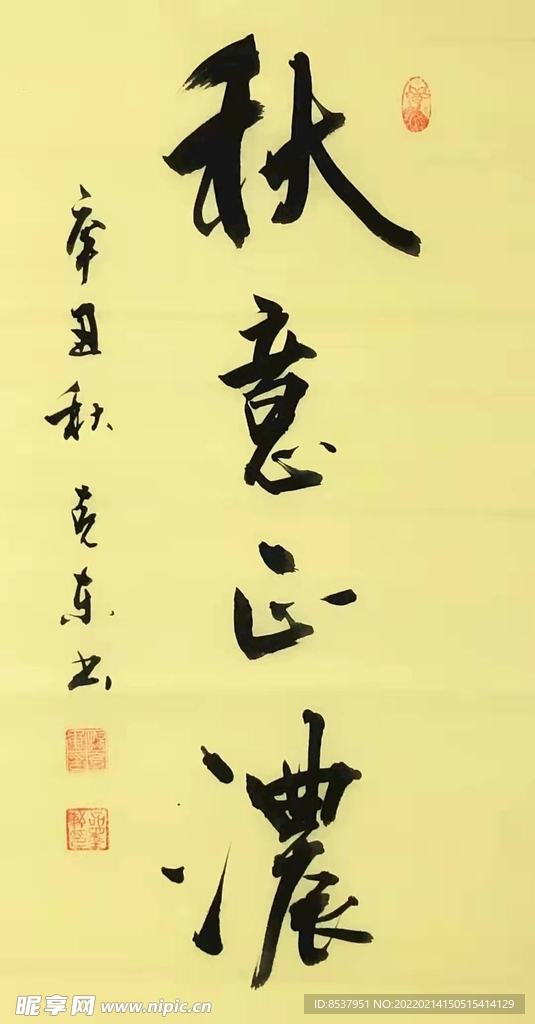 秋意正濃
辛丑秋克東书
昵享网 www.nipic.cn
ID:8537951 NO:20220214150515414129